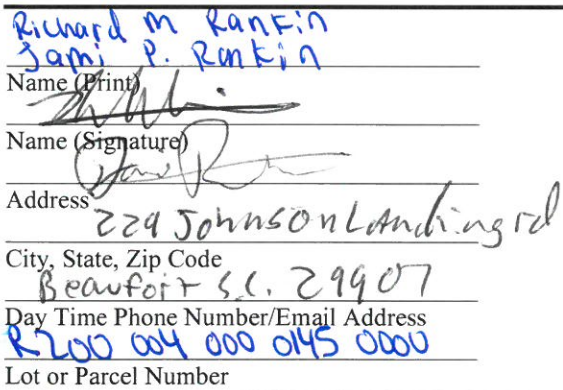 Richard M Rankin
Jami P. Rankin
Name (Print)
Name (Signature)
Address
229 Johnson Landing rd
City, State, Zip Code
Beaufort S.C. 29907
Day Time Phone Number/Email Address
R200 004 000 0145 0000
Lot or Parcel Number